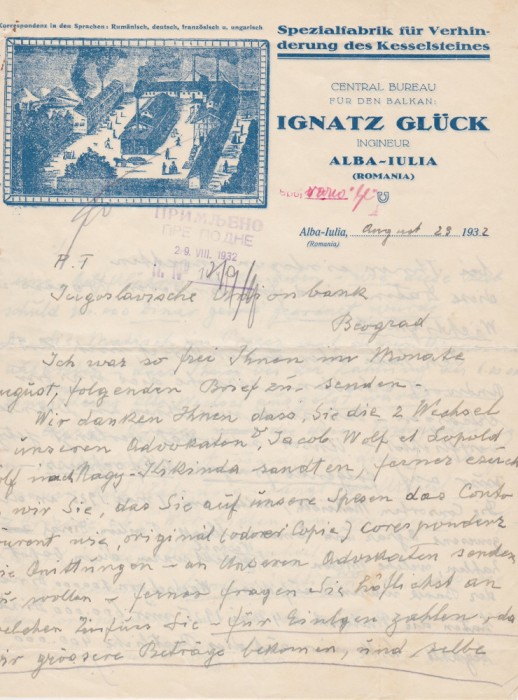 Korrespondenz in den Sprachen: Rumänisch, deutsch, französisch u. ungarisch
Spezialfabrik für Verhin-
derung des Kesselsteines
CENTRAL BUREAU
FÜR DEN BALKAN:
IGNATZ GLÜCK
INGINEUR
ALBA-IULIA
(ROMANIA)
Alba-Iulia, august 29 1932
(Romania)
ПРИМЉЕНО
ПРЕ ПОДНЕ
29. VIII. 1932
P.T
Jugoslavische Unionbank
Beograd
Ich war so frei Ihnen im Monate
august, folgenden Brief zu senden -
Wir danken Ihnen dass, Sie die 2 Wechsel
unseren Advokaten Dr, Jacob Wolf et Leopold
nach Nagy-Kikinda sandten, ferner
wir Sie, das Sie auf unsere Spesen das Conto
original (oder Copie) corespondenz
- an Unseren Advokaten senden
wollen - ferner fragen Sie höflichst an
welchen Zinsfuss Sie - für Einlgen zahlen, da
wir grössere Beträge bekomen, und selbe